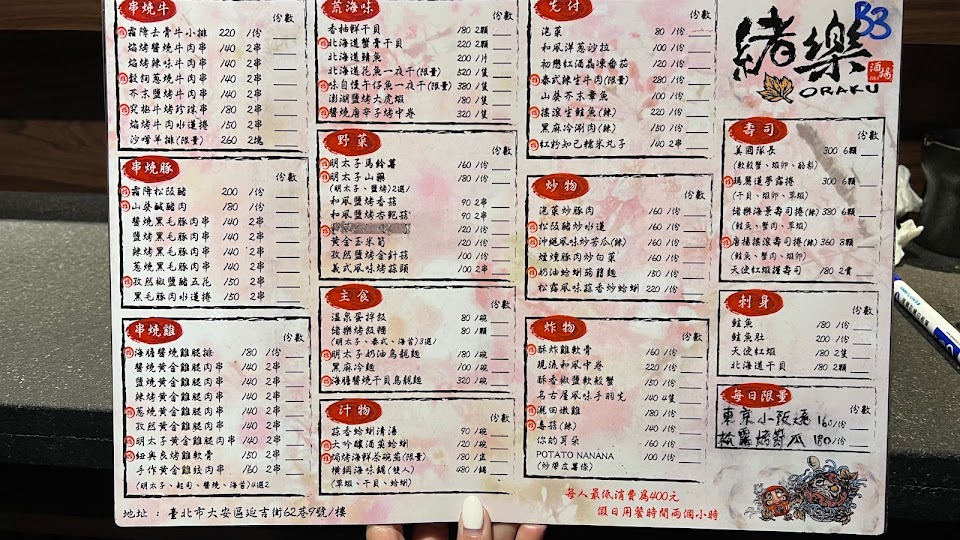 串燒牛
份數
霜降去骨牛小排 220 /份
焰烤醬燒牛肉串 140 2串
焰烤辣味牛肉串 140 2串
穀飼蔥燒牛肉串 140 2串
芥末鹽烤牛肉串 140 2串
究極牛烤珍珠串 180 2串
焰烤牛肉水蓮捲 150 2串
沙嗲羊排(限量) 260 2塊
串燒豚
份數
霜降松阪豬 200 /份
山葵鹹豬肉 180 /份
醬燒黑毛豚肉串 140 2串
鹽烤黑毛豚肉串 140 2串
辣烤黑毛豚肉串 140 2串
蔥燒黑毛豚肉串 140 2串
孜然椒鹽豬五花 150 2串
黑毛豚肉水蓮捲 150 2串
串燒雞
份數
海膽醬燒雞腿排 180 /份
醬燒黃金雞腿肉串 140 2串
鹽燒黃金雞腿肉串 140 2串
辣烤黃金雞腿肉串 140 2串
蔥燒黃金雞腿肉串 140 2串
孜然黃金雞腿肉串 140 2串
明太子黃金雞腿肉串 140 2串
經典長烤雞軟骨 150 2串
手作黃金雞絞肉串 160 2串
(明太子、起司、醬燒、海苔)4選2
荒海味
份數
香柚鮮干貝 180 2顆
北海道蟹膏干貝 220 2顆
北海道鯖魚 200 /片
北海道花魚一夜干(限量) 520 /隻
味自慢午仔魚一夜干(限量) 380 /隻
澎湖鹽燒大虎蝦 180 /隻
醬燒唐辛子烤中卷 320 /隻
野菜
份數
明太子馬鈴薯 160 /份
明太子山藥 180 /份
(明太子、鹽烤)2選1
和風鹽烤香菇 90 2串
和風鹽烤杏鮑菇 90 2串
120 /份
黃金玉米筍 120 /份
孜然鹽烤金針菇 100 /份
義式風味烤蒜頭 100 2串
主食
份數
溫泉蛋拌飯 80 /碗
緒樂烤飯糰 80 /顆
(明太子、泰式、海苔)3選1
明太子奶油烏龍麵 180 /碗
黑麻冷麵 100 /碗
海膽醬燒干貝烏龍麵 320 /碗
汁物
份數
蒜香蛤蜊清湯 90 /碗
大吟釀酒蒸蛤蜊 120 /碗
焗烤海鮮茶碗蒸(限量) 80 /盅
橫綱海味鍋(雙人) 480 /鍋
(草蝦、干貝、蛤蜊)
先付
份數
泡菜 80 /份
和風洋蔥沙拉 100 /份
初戀紅酒蟲凍番茄 120 /份
泰式辣生牛肉(限量) 280 /份
山葵芥末章魚 100 /份
搖滾生鮭魚(辣) 220 /份
黑麻冷涮肉(辣) 150 /份
紅粉知己糯米丸子 140 2串
炒物
份數
泡菜炒豚肉 160 /份
松阪豬炒水蓮 160 /份
沖繩風味炒苦瓜(辣) 160 /份
煙燻豚肉炒白菜 160 /份
奶油蛤蜊筊白筍 150 /份
松露風味蒜香炒蛤蜊 220 /份
炸物
份數
酥炸雞軟骨 160 /份
現流和風中卷 220 /份
酥香椒鹽軟殼蟹 150 /份
名古屋風味手羽先 140 4隻
濑田嫩雞 180 /份
春菇(辣) 140 /份
你的耳朵 160 /份
POTATO NANANA 100 /份
(炒帶皮薯條)
緒樂
酒場
ORAKU
B3
壽司
份數
美國隊長 300 6顆
(軟殼蟹、蝦卵、酪梨)
瑪麗蓮夢露捲 300 6顆
(干貝、蝦卵、草蝦)
緒樂海景壽司捲(辣) 380 6顆
(鮭魚、蟹肉、草蝦)
唐揚搖滾壽司捲(辣) 360 8顆
(鮭魚、蟹肉、蝦卵)
天使紅蝦握壽司 180 2貫
刺身
份數
鮭魚 180 /份
鮭魚肚 200 /份
天使紅蝦 180 2隻
北海道干貝 180 2顆
每日限量
份數
東京小阪燒 160 /份
松露烤絲瓜 180 /份
每人最低消費為400元
假日用餐時間兩個小時
地址：臺北市大安區延吉街62巷9號/樓